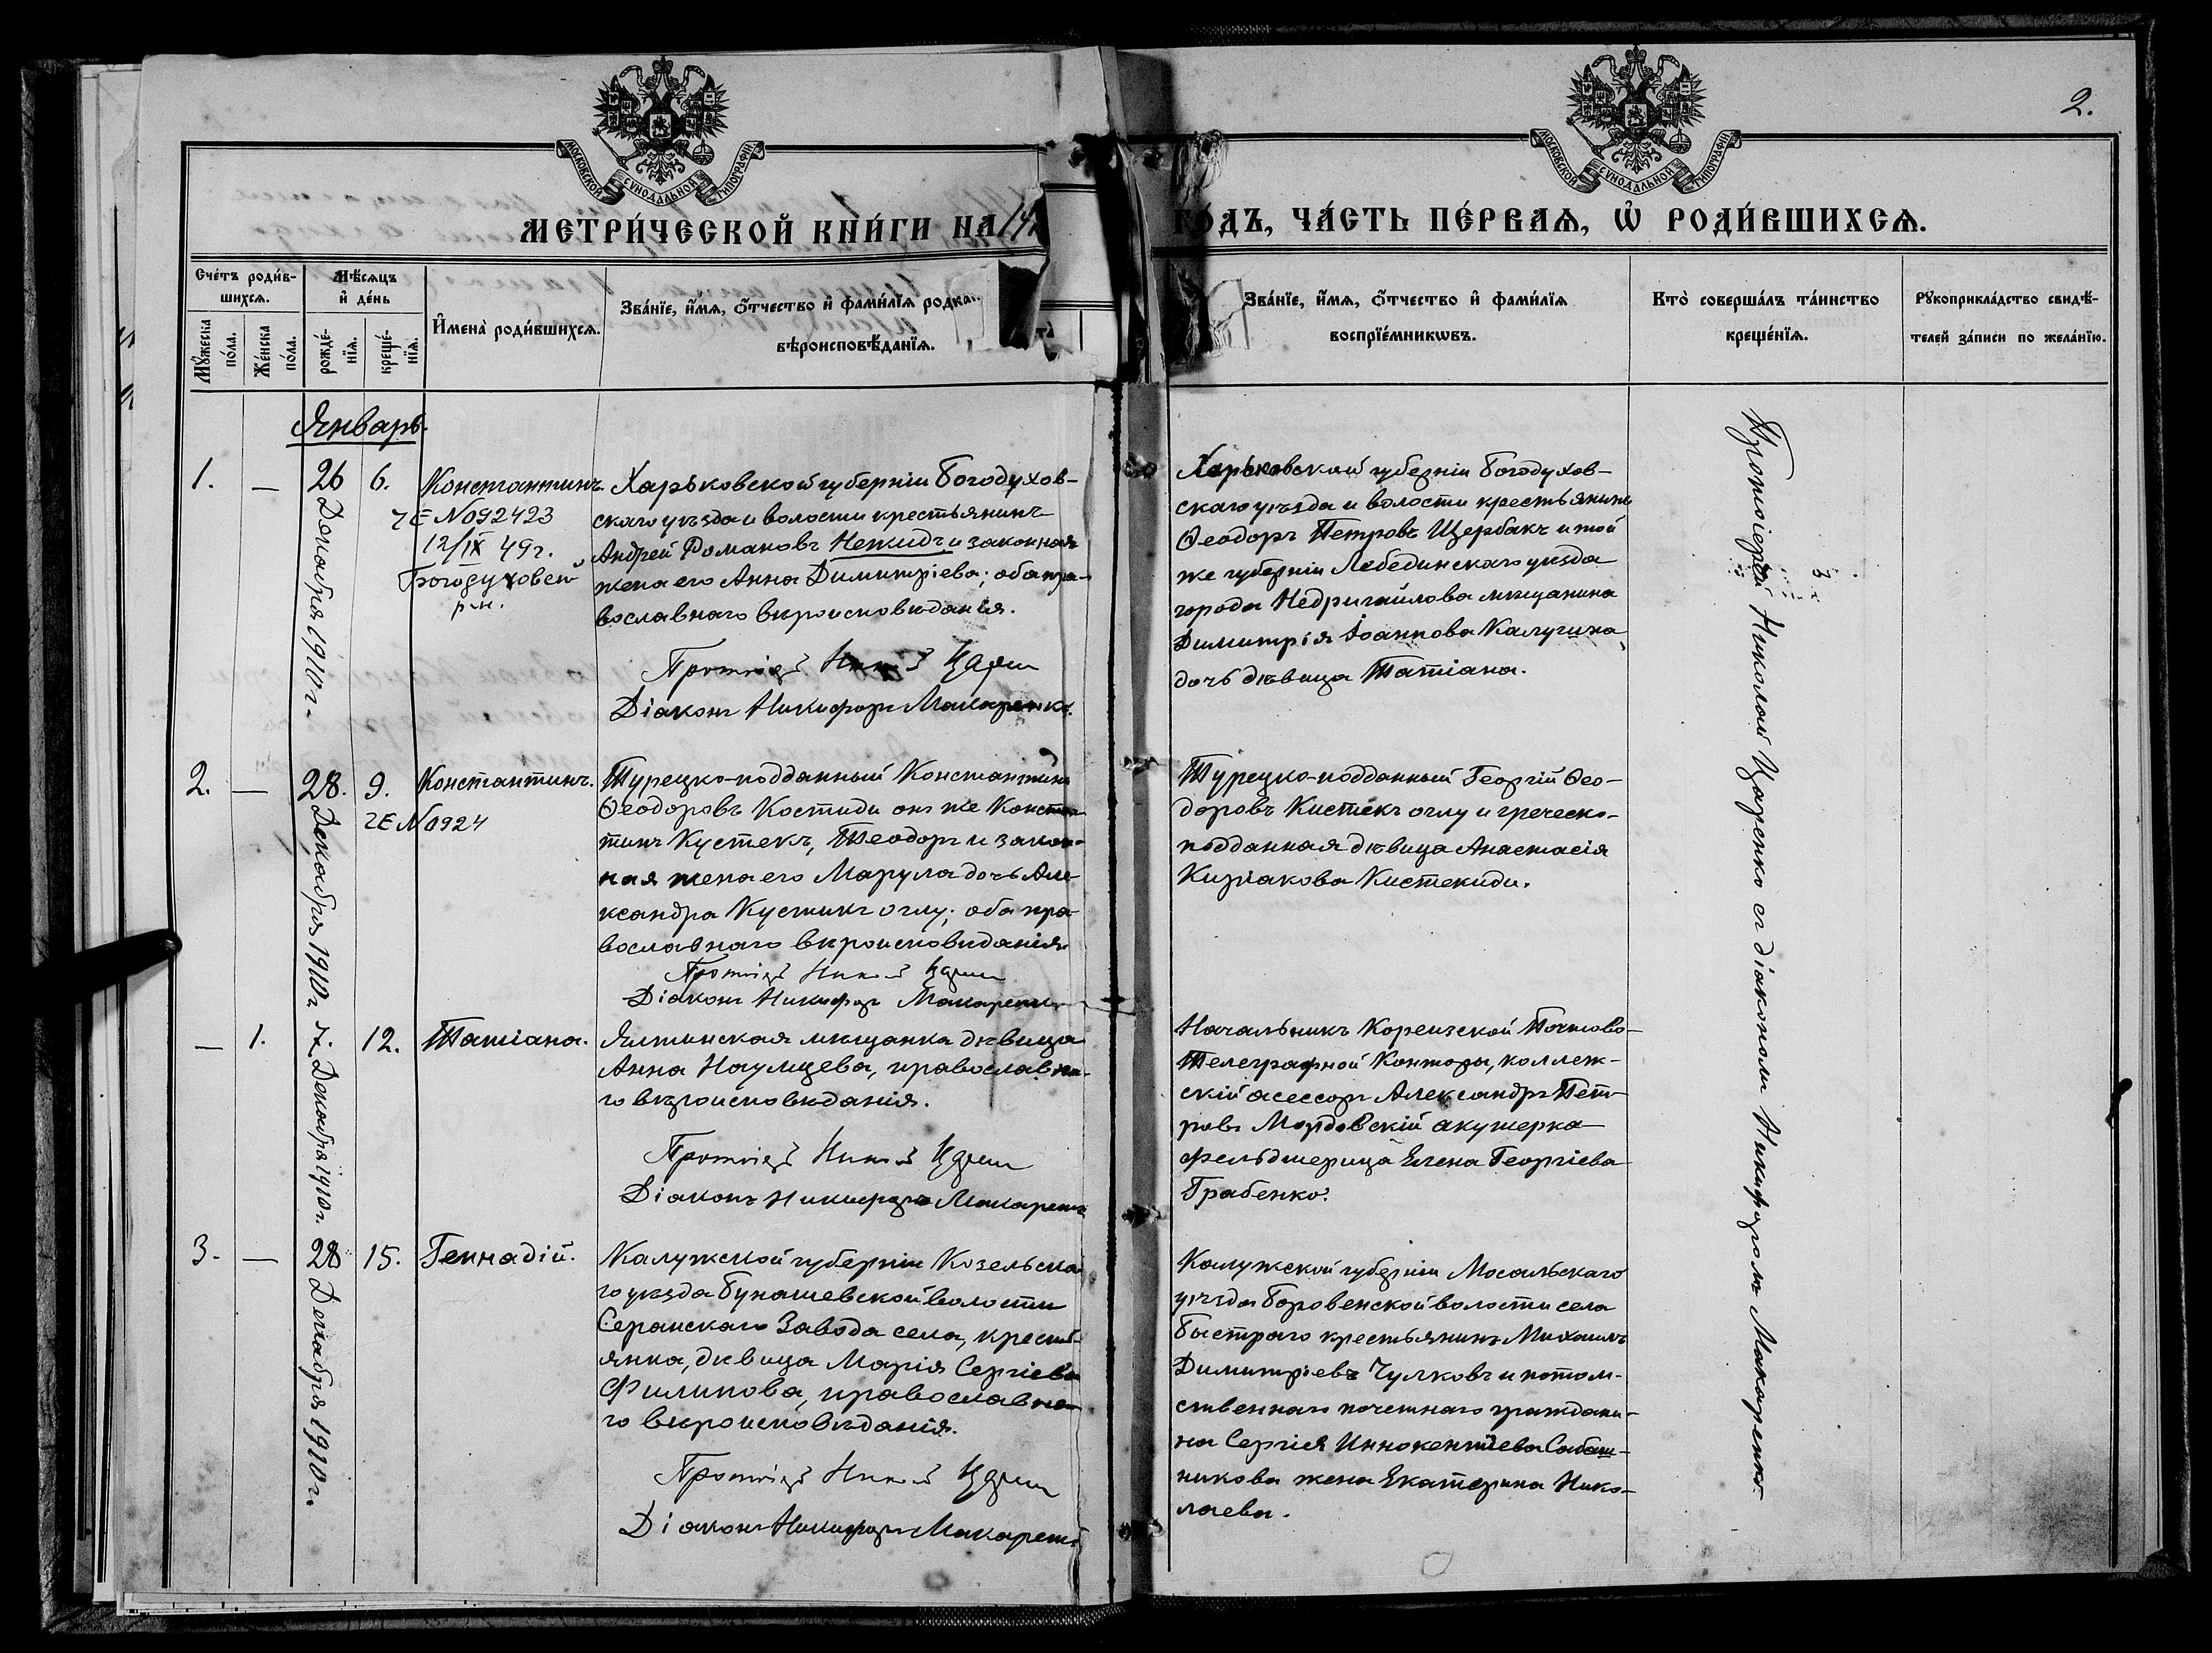 2.
МОСКОВСКОЙ СУНОДАЛЬНОЙ ТИПОГРАФІИ
МОСКОВСКОЙ СУНОДАЛЬНОЙ ТИПОГРАФІИ
МЕТРИ́ЧЕСКОЙ КНИ́ГИ НА 191
ГО́ДЪ, ЧА́СТЬ ПЕ́РВАѦ, Ѡ҆ РОДИ́ВШИХСѦ.
Сче́тъ роди́в-
шихсѧ.
Мꙋ́жеска по́ла.
Же́нска по́ла.
Мѣ́сѧцъ
и҆ де́нь
рожде́-нїѧ.
креще́-нїѧ.
И҆мена̀ роди́вшихсѧ.
Зва́нїе, и҆́мѧ, ѻ҆́тчество и҆ фами́лїѧ
вѣроисповѣ́данїѧ.
Зва́нїе, и҆́мѧ, ѻ҆́тчество и҆ фами́лїѧ
воспрїе́мникѡвъ.
Кто̀ соверша́лъ та́инство
креще́нїѧ.
Рꙋкоприкла́дство свидѣ́-
телей за́писи по жела́нїю.
Январь.
1. — 26 Декабря 1910 г. 6. Константинъ.
ЧЕ N 092423
12/IX 49г.
Богодуховск
р-н.
Харьковской губерніи Богодухов-
скаго уѣзда и волости крестьянинъ
Андрей Романовъ Нежидъ и законная
жена его Анна Димитріева; оба пра-
вославнаго вѣроисповѣданія.
Діаконъ Никифоръ Макаренко.
Харьковской губерніи Богодухов-
скаго уѣзда и волости крестьянинъ
Ѳеодоръ Петровъ Щербакъ и той
же губерніи Лебединскаго уѣзда
города Недригайлова мѣщанина
Димитрія Іоаннова Калугина
дочь дѣвица Татіана.
2. — 28. Декабря 1910 г. 9. Константинъ.
ЧЕ N 0924
Турецко-подданный Константинъ
Ѳеодоровъ Костиди онъ же Констан
тинъ Кустекъ, Теодоръ и закон-
ная жена его Марула дочь Але-
ксандра Кустикъ оглу; оба пра-
вославнаго вѣроисповѣданія
Діаконъ Никифоръ Макаренко
Турецко-подданный Георгій Ѳео-
доровъ Кистекъ оглу и греческо-
подданная дѣвица Анастасія
Киріакова Кистекиди.
— 1. Декабря 1910 г. 12. Татіана.
Ялтинская мѣщанка дѣвица
Анна Наумцева, православна-
го вѣроисповѣданія.
Діаконъ Никифоръ Макаренко
Начальникъ Кореизской Почтово-
Телеграфной Конторы, коллеж-
скій асессоръ Александръ Пет-
ровъ Мордовскій акушерка
фельдшерица Елена Георгіева
Грабенко.
3. — 28 Декабря 1910 г. 15. Геннадій.
Калужской губерніи Козельска
го уѣзда Бунашевской волости
Серенскаго Завода села, кресть-
янка, дѣвица Марія Сергіева
Филипова, православна-
го вѣроисповѣданія.
Діаконъ Никифоръ Макаренко
Калужской губерніи Мосальскаго
уѣзда Боровенской волости села
Быстраго крестьянинъ Михаилъ
Димитріевъ Чулковъ и потом-
ственнаго почетнаго граждани-
на Сергія Иннокентіева Сабаш-
никова жена Екатерина Нико-
лаева.
Протоіерей Николай Царенко съ діакономъ Никифоромъ Макаренко.